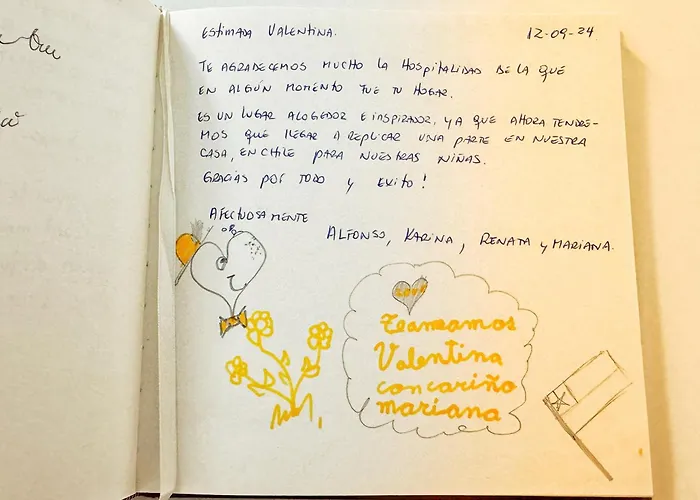 Estimada Valentina.
12-09-24
Te agradecemos mucho la hospitalidad de la que
en algún momento fue tu hogar.
Es un lugar alogedor e inspirador, ya que ahora tendre-
mos que llegar a replicar una parte en nuestra
casa, en Chile para nuestras niñas.
Gracias por todo y exito!
Afectuosamente
Alfonso, Karina, Renata y Mariana.
teamamos
Valentina
concariño
mariana